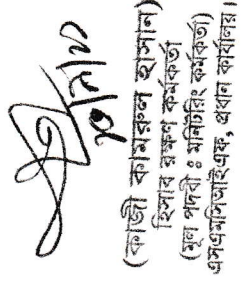 ২০/৭/২১
(কাজী কামরুল হাসান)
হিসাব রক্ষণ কর্মকর্তা
(মূল পদবী : মনিটরিং কর্মকর্তা)
এসএমসিআইএফ, প্রধান কার্যালয়।